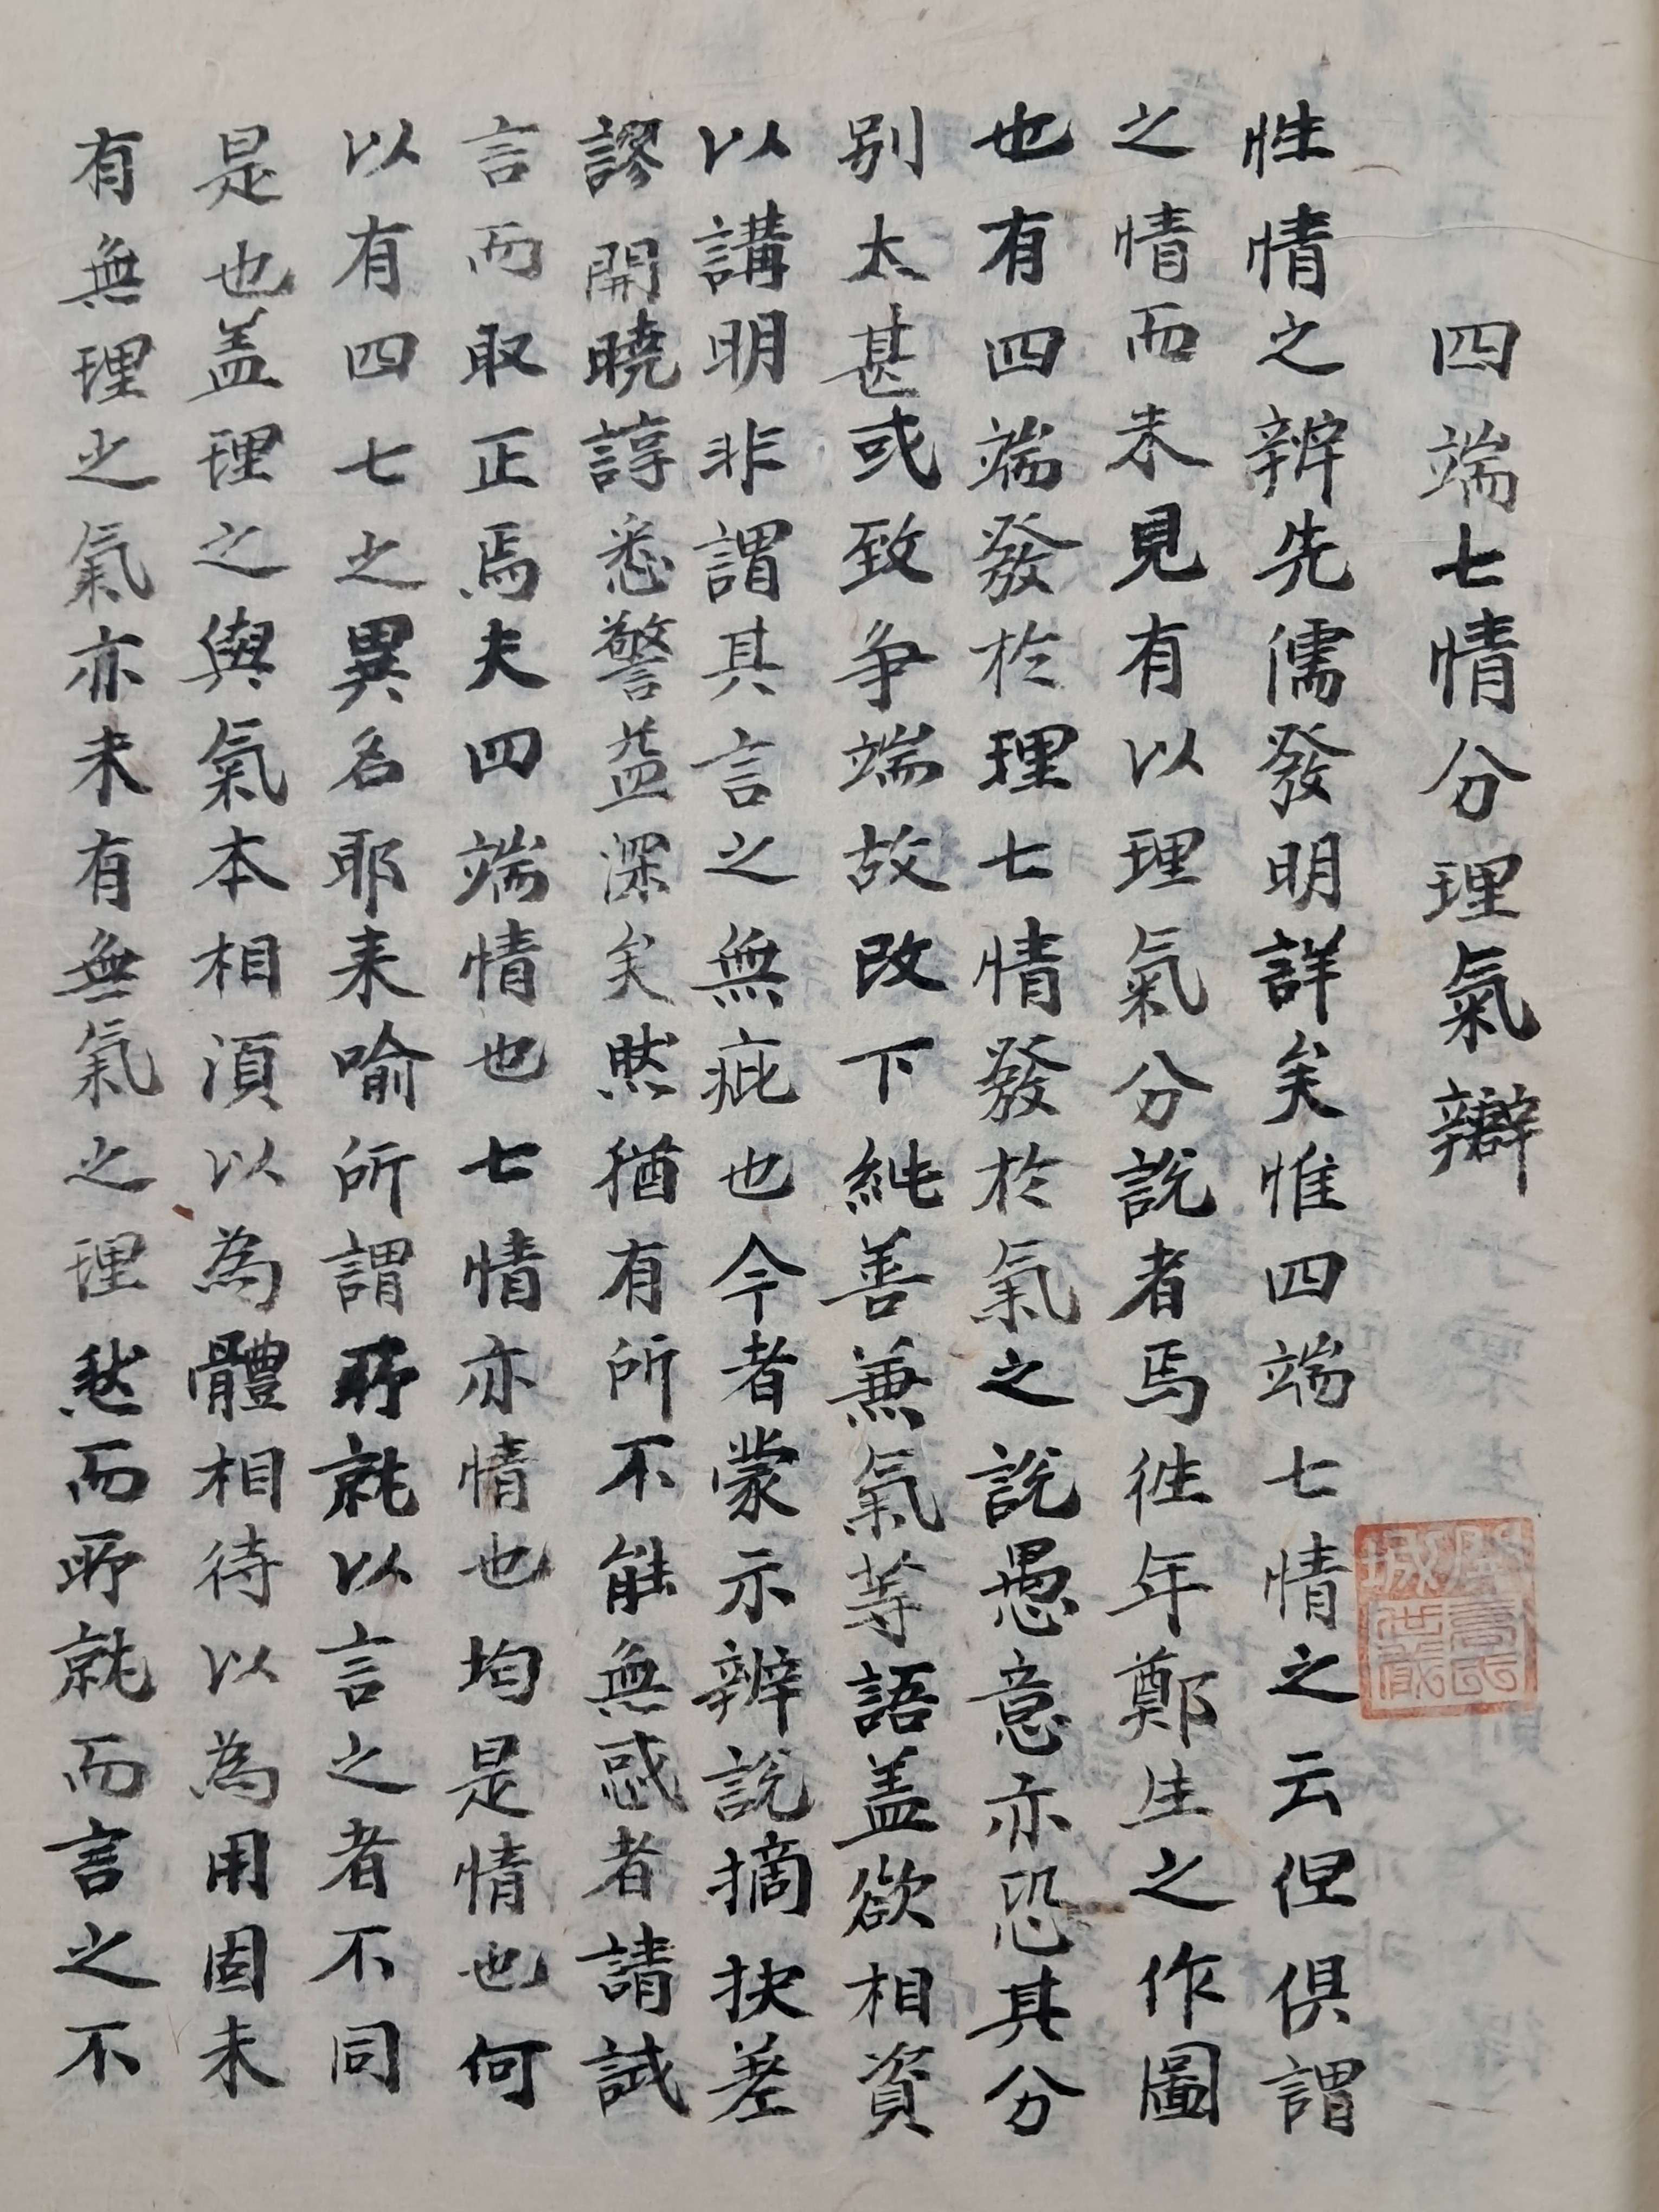 四端七情分理氣辯
性情之辨先儒發明詳矣惟四端七情之云但俱謂
之情而未見有以理氣分說者焉徃年鄭生之作圖
也有四端發於理七情發於氣之說愚意亦恐其分
別太甚或致争端故改下純善兼氣等語盖欲相資
以講明非謂其言之無疵也今者蒙示辨說摘抉差
謬開曉諄悉警益深矣然猶有所不能無惑者請試
言而取正焉夫四端情也七情亦情也均是情也何
以有四七之異名耶来喻所謂所就以言之者不同
是也盖理之與氣本相須以為體相待以為用固未
有無理之氣亦未有無氣之理然而所就而言之不